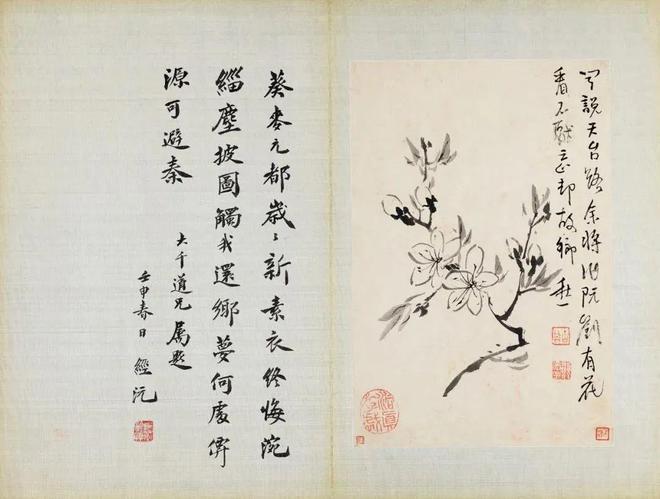 聞說天台路余將訪阮劉有花
看不猒忘却故鄉秋
葵麥元都歲々新素衣終悔涴
緇塵披圖觸我還鄉夢何處僊
源可避秦
大千道兄屬題
壬申春日 經沅